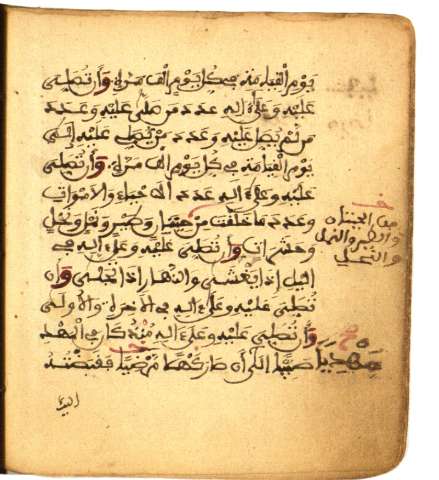 يوم القيامة في كل يوم الف مرة وأن تصلي
عليه وعلى اله عدد من صلى عليه وعدد
من لم يصل عليه وعدد من يصلي عليه إلى
يوم القيامة في كل يوم الف مرة وأن تصلي
عليه وعلى اله عدد الاحياء والاموات
وعدد ما خلقت من حيتان وطير ونمل ونحل
وحشرات وأن تصلي عليه وعلى اله في
اليل إذا يغشى والنهار إذا تجلى وأن
تصلي عليه وعلى اله في الاخرة والاولى
وأن تصلي عليه وعلى اله منذ كان في المهد
صبيا إلى أن صار كهلا مرضيا فقبضته
اليك
من
والطير والنمل
والنحل
مهديا